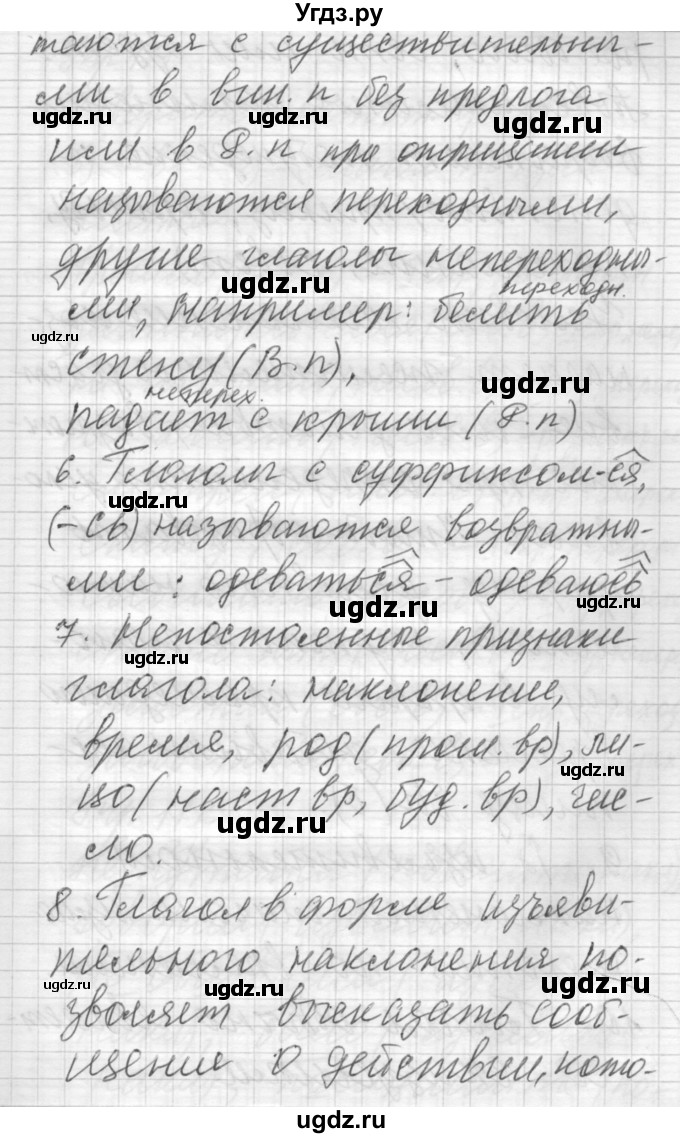 Угдз.ру
таются с существительны-
ми в вин. п без предлога
ugdz.ru ugdz.ru ugdz.ru
или в Р.п при отрицании
называются переходными,
другие глаголы непереходны-
ugdz.ru
переходн.
ми, например: белить
ugdz.ru
стену (В.п),
ugdz.ru
неперех.
падает с крыши (Р.п)
6. Глаголы с суффиксом -ся,
ugdz.ru
(-сь) называются возвратны-
ми: одеваться - одеваюсь
ugdz.ru ugdz.ru
7. Непостоянные признаки
ugdz.ru
глагола: наклонение,
время, род (прош. вр), ли-
ugdz.ru
цо (наст вр, буд. вр), чис-
ugdz.ru
ло.
8. Глагол в форме изъяви-
тельного наклонения по-
ugdz.ru ugdz.ru
зволяет высказать сооб-
щение о действии, кото-
ugdz.ru
ugdz.ru